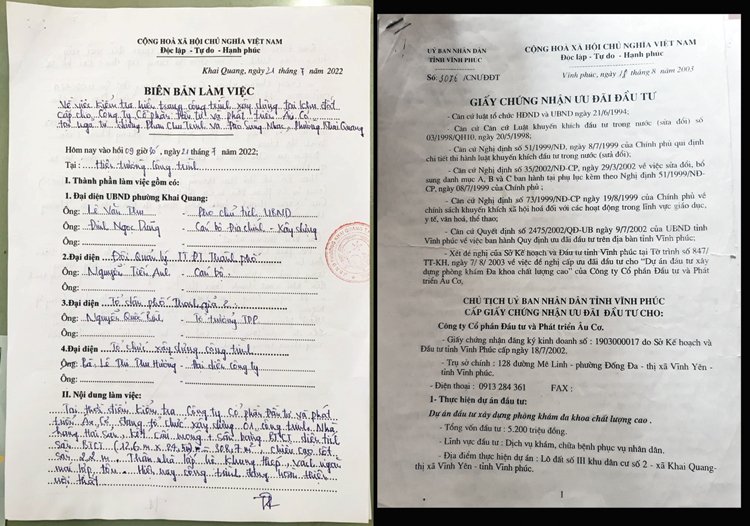 CỘNG HOÀ XÃ HỘI CHỦ NGHĨA VIỆT NAM
Độc lập - Tự do - Hạnh phúc
Khai Quang, ngày 21 tháng 7 năm 2022
BIÊN BẢN LÀM VIỆC
Về việc kiểm tra hiện trạng công trình xây dựng tại khu đất
cấp cho Công ty Cổ phần Đầu tư và phát triển Âu Cơ
tại ngã tư đường Phan Chu Trinh và Đào Sung Nhạc, Phường Khai Quang
Hôm nay vào hồi 09 giờ 30, ngày 21 tháng 7 năm 2022;
Tại: Hiện trường công trình
I. Thành phần làm việc gồm có:
1. Đại diện UBND phường Khai Quang:
Ông: Lê Văn Thu Phó chủ tịch UBND
Ông: Đinh Ngọc Dũng Cán bộ Địa chính - Xây dựng
Ông:
2.Đại diện Đội Quản lý TT ĐT Thành phố
Ông: Nguyễn Tiến Anh Cán bộ
Ông:
3.Đại diện Tổ dân phố Thanh giã 2
Ông: Nguyễn Quốc Tổ trưởng TDP
Ông:
4.Đại diện Tổ chức xây dựng công trình
Bà. Lê Thị Thu Hường - Đại diện công ty
II. Nội dung làm việc:
Tại thời điểm kiểm tra Công ty Cổ phần Đầu tư và phát
triển Âu Cơ đang tổ chức xây dựng 01 công trình Nhà
hàng Hải Sản, kết cấu móng + sàn bằng BTCT diện tích
sàn BTCT (12,6 m x 24,5m) = 308,7 m², chiều cao cốt
sàn 2,2 m. Thân nhà lắp hệ khung thép, vách ngăn
mái lợp, tôn. Hiện nay công trình đang hoàn thiện
nội thất
UỶ BAN NHÂN DÂN
TỈNH VĨNH PHÚC
Số: 3076 /CNUĐĐT
CỘNG HOÀ XÃ HỘI CHỦ NGHĨA VIỆT NAM
Độc lập - Tự do - Hạnh phúc
Vĩnh phúc, ngày 18 tháng 8 năm 2003
GIẤY CHỨNG NHẬN ƯU ĐÃI ĐẦU TƯ
- Căn cứ luật tổ chức HĐND và UBND ngày 21/6/1994;
- Căn cứ Căn cứ Luật khuyến khích đầu tư trong nước (sửa đổi) số
03/1998/QH10, ngày 20/5/1998;
- Căn cứ Nghị định số 51/1999/NĐ, ngày 8/7/1999 của Chính phủ qui định
chi tiết thi hành luật khuyến khích đầu tư trong nước (sửa đổi);
- Căn cứ Nghị định số 35/2002/NĐ-CP, ngày 29/3/2002 về việc sửa đổi, bổ
sung danh mục A, B và C ban hành tại phụ lục kèm theo Nghị định 51/1999/NĐ-
CP, ngày 08/7/1999 của Chính phủ ;
- Căn cứ Nghị định số 73/1999/NĐ-CP ngày 19/8/1999 của Chính phủ về
chính sách khuyến khích xã hội hoá đối với các hoạt động trong lĩnh vực giáo dục,
y tế, văn hoá, thể thao;
- Căn cứ Quyết định số 2475/2002/QĐ-UB ngày 9/7/2002 của UBND tỉnh
Vĩnh phúc về việc ban hành Quy định ưu đãi đầu tư trên địa bàn tỉnh Vĩnh phúc;
- Xét đề nghị của Sở Kế hoạch và Đầu tư tỉnh Vĩnh phúc tại Tờ trình số 847/
TT-KH, ngày 7/ 8/ 2003 về việc đề nghị cấp ưu đãi đầu tư cho "Dự án đầu tư xây
dựng phòng khám Đa khoa chất lượng cao" của Công ty Cổ phần Đầu tư và Phát
triển Âu Cơ,
CHỦ TỊCH UỶ BAN NHÂN DÂN TỈNH VĨNH PHÚC
CẤP GIẤY CHỨNG NHẬN ƯU ĐÃI ĐẦU TƯ CHO:
Công ty Cổ phần Đầu tư và Phát triển Âu Cơ.
- Giấy chứng nhận đăng ký kinh doanh số : 1903000017 do Sở Kế hoạch và
Đầu tư tỉnh Vĩnh phúc cấp ngày 18/7/2002.
- Trụ sở chính : 128 đường Mê Linh - phường Đống Đa - thị xã Vĩnh Yên -
tỉnh Vĩnh phúc.
- Điện thoại : 0913 284 361 FAX :
1 - Thực hiện dự án đầu tư:
Dự án đầu tư xây dựng phòng khám đa khoa chất lượng cao .
- Tổng vốn đầu tư : 5.200 triệu đồng.
- Lĩnh vực đầu tư : Dịch vụ khám, chữa bệnh phục vụ nhân dân.
- Địa điểm thực hiện dự án : Lô đất số III khu dân cư số 2 - xã Khai Quang-
thị xã Vĩnh Yên -tỉnh Vĩnh phúc.
1